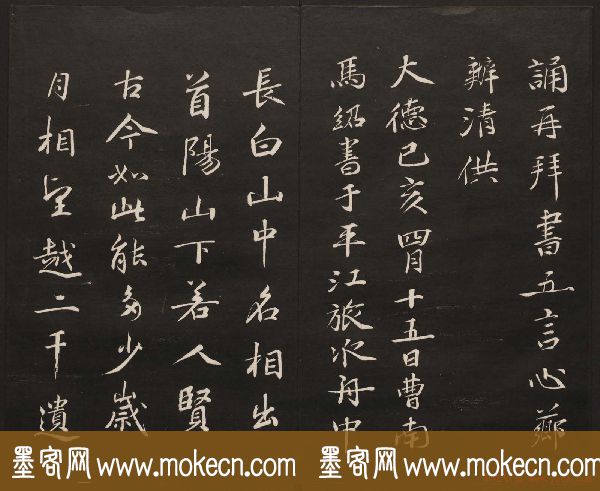 誦再拜書五言心薌
辦清供
大德己亥四月十五日曹南
馬紹書于平江旅次舟中
長白山中名相出
首陽山下若人賢
古今如此能多少歲
月相望越二千遺
墨客网 www.mokecn.com 墨客网 www.mokecn.com